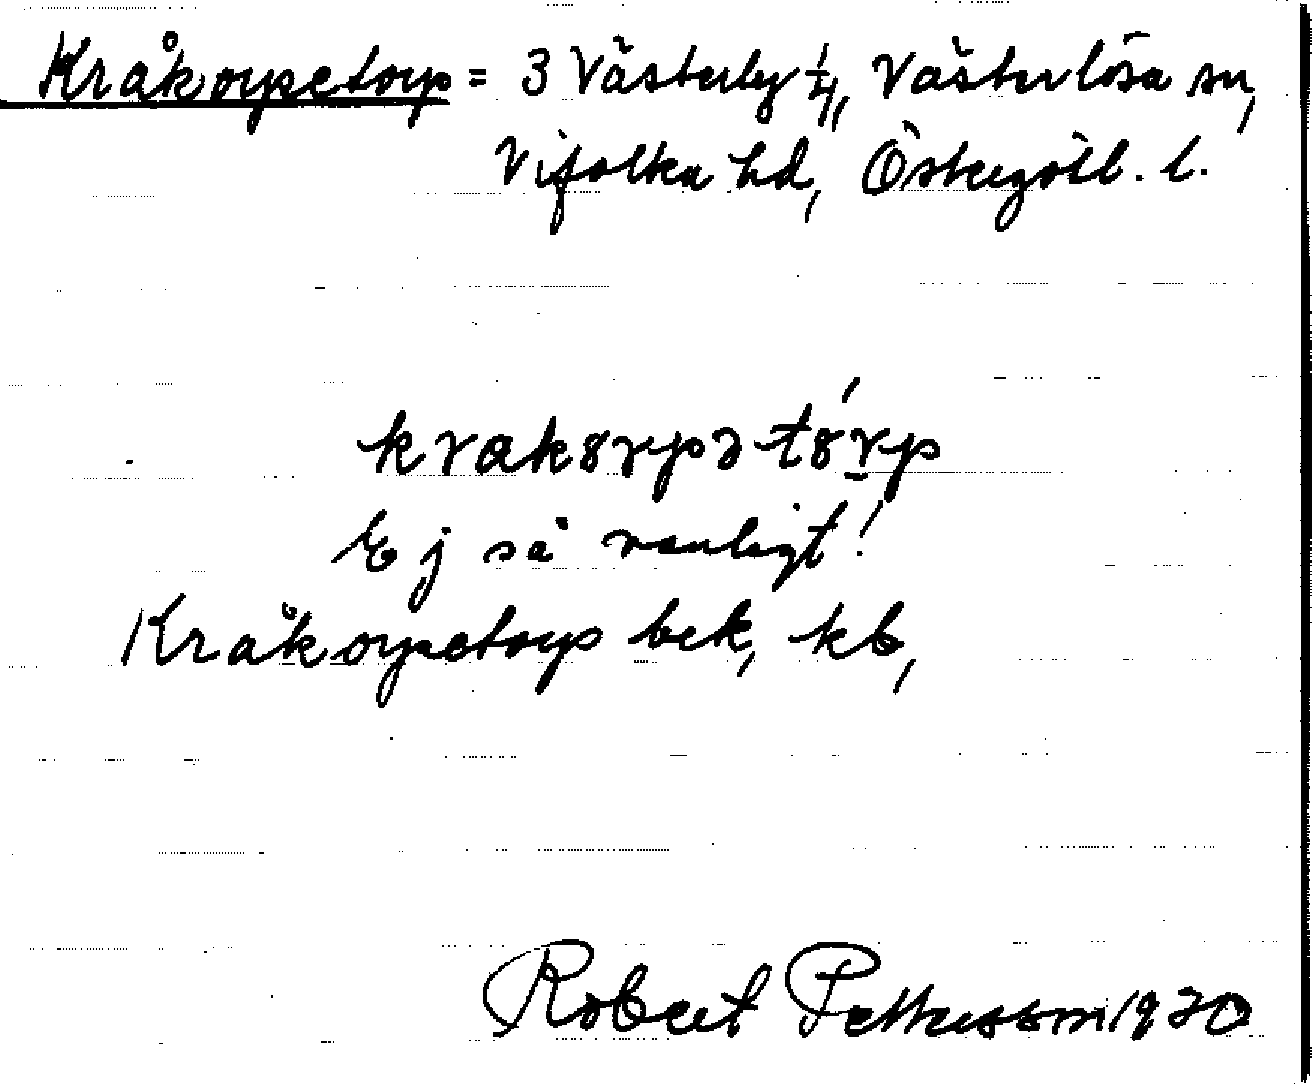 Kråkorpetorp = 3 Västerby 1/4, Västerlösa sn,
Vifolka hd, Östergötl. l.
krakȣrpətȣ́rp
Ej så vanligt!
Kråkorpetorp bek, kb,
Robert Pettersson 1920